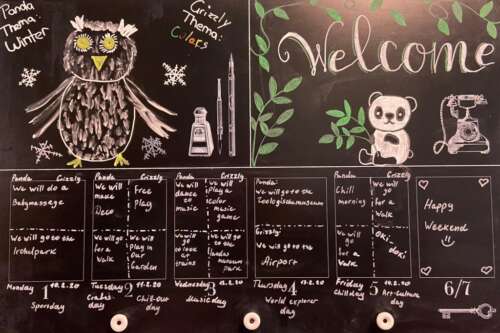 Panda
Thema:
Winter
Grizzly
Thema:
Colors
Welcome
Panda Grizzly
We will do a
Babymassage
We will go to the
Panda Grizzly
We will
make
Deco
Free
Play
We will go
for a
Walk
We will
play in
Our
Garden
Panda Grizzly
We will
dance
to
music
We will
play a
color
music
game
We will
go
to look
at
trains
We will
go to the
museum
Park
Panda:
We will go to the
Zoologischemuseum
Grizzly:
We will go to the
Airport
Panda Grizzly
Chill
morning
We will
go
for a
Walk
We will
go
for a
Walk
Oki
doki
Happy
Weekend
!!
Monday 1 10.2.20
Sportsday
Tuesday 2 11.2.20
Chill-Out
day
Wednesday 3 12.2.20
Musicday
Thursday 4 13.2.20
World explorer
day
Friday 5 14.2.20
Chillday Art-Culture
day
6/7